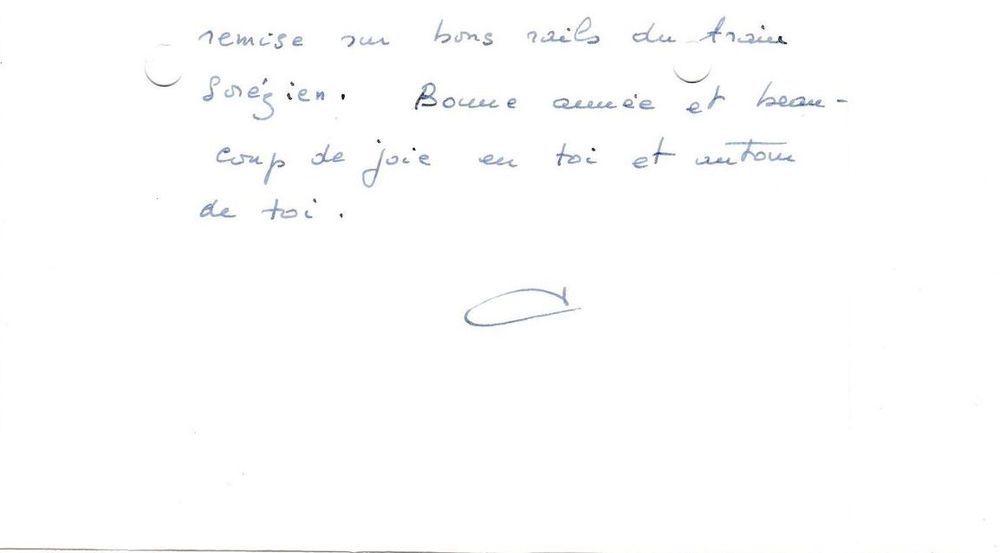 remise sur bons rails du train
Sorézien. Bonne année et beau-
coup de joie en toi et autour
de toi.